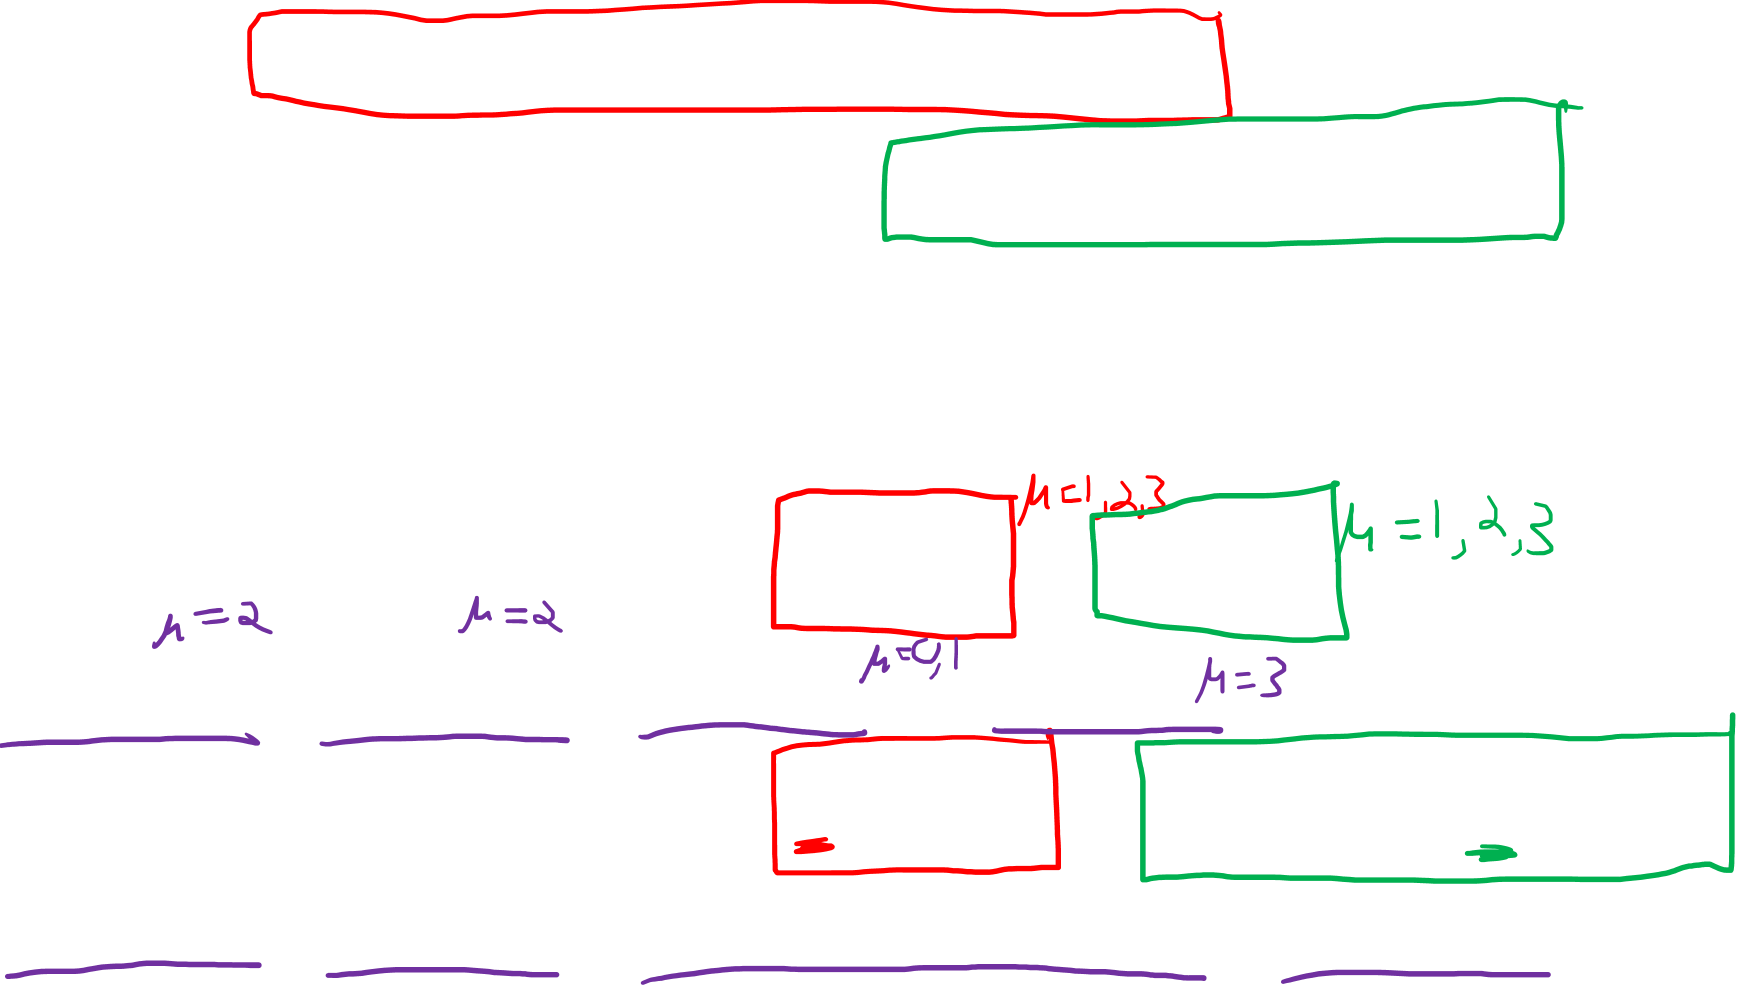 μ=1,2,3
μ=1,2,3
μ=2
μ=2
μ=0,1
μ=3